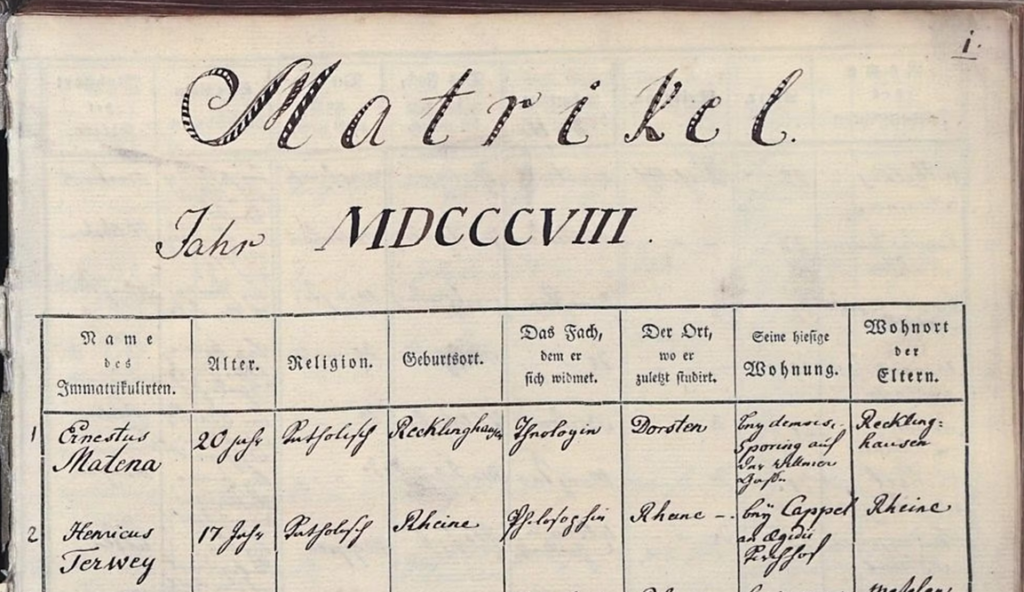 1.
Matrikel.
Jahr MDCCCVIII.
Name des Immatrikulirten.
Alter.
Religion.
Geburtsort.
Das Fach, dem er sich widmet.
Der Ort, wo er zuletzt studirt.
Seine hiesige Wohnung.
Wohnort der Eltern.
1 Ernestus Matena 20 Jahr Katholisch Recklinghausen Theologie Dorsten bey Sporing auf der Gasse Reckling= hausen
2 Henricus Terwey 17 Jahr Katholisch Rheine Philosophie Rheine bey Cappel an Ægidii Kirchhof Rheine